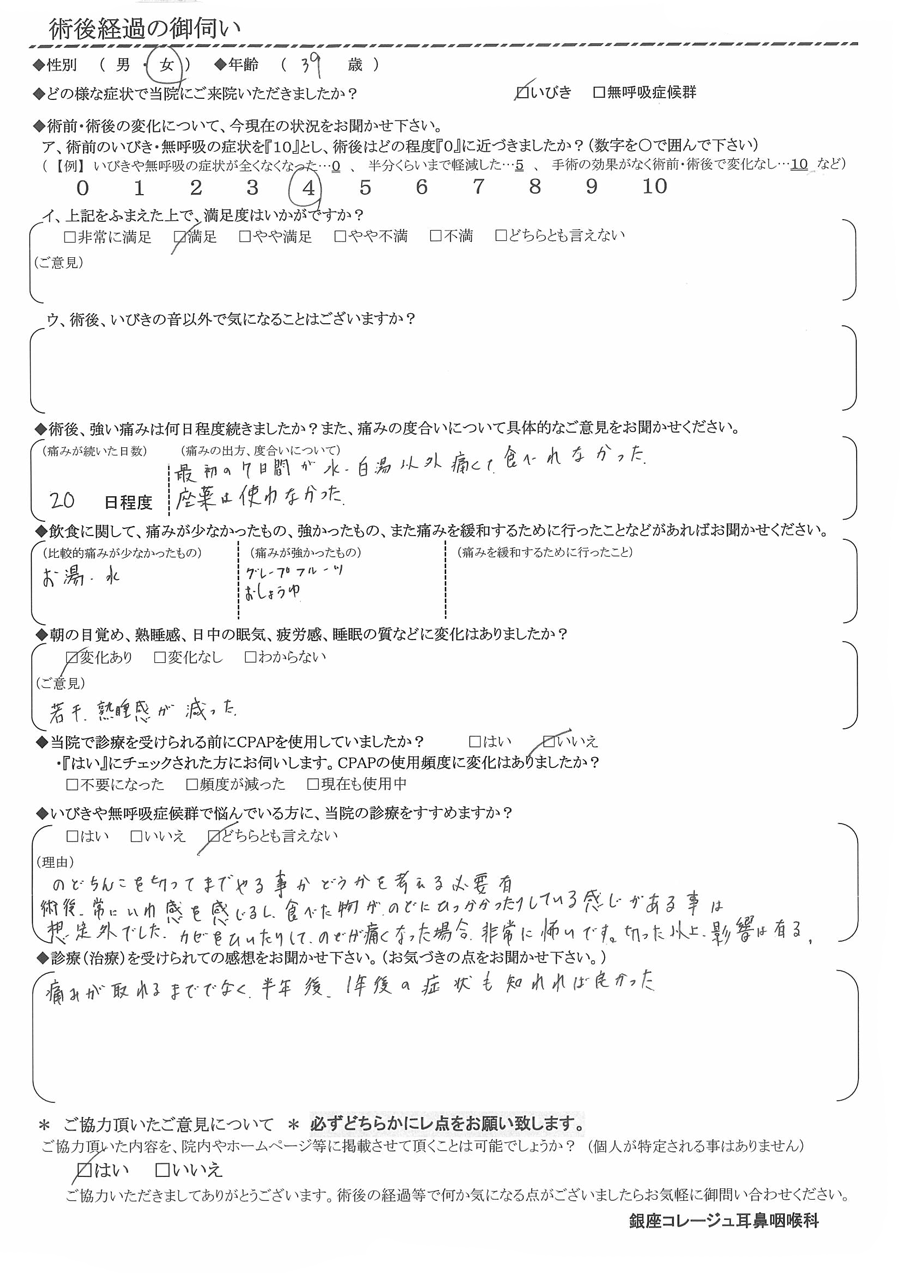 術後経過の御伺い
◆性別　（ 男 ・ 女 ）　◆年齢　（ 39　歳 ）
◆どの様な症状で当院にご来院いただきましたか？　□いびき　□無呼吸症候群
◆術前・術後の変化について、今現在の状況をお聞かせ下さい。
ア、術前のいびき・無呼吸の症状を『１０』とし、術後はどの程度『０』に近づきましたか？（数字を○で囲んで下さい）
（【例】 いびきや無呼吸の症状が全くなくなった…0 、 半分くらいまで軽減した…5 、 手術の効果がなく術前・術後で変化なし…10 など）
0　1　2　3　4　5　6　7　8　9　10
イ、上記をふまえた上で、満足度はいかがですか？
□非常に満足　□満足　□やや満足　□やや不満　□不満　□どちらとも言えない
（ご意見）
ウ、術後、いびきの音以外で気になることはございますか？
◆術後、強い痛みは何日程度続きましたか？また、痛みの度合いについて具体的なご意見をお聞かせください。
（痛みが続いた日数）　（痛みの出方、度合いについて）
最初の7日間が水・白湯以外痛くて食べれなかった.
20　日程度　座薬は使わなかった.
◆飲食に関して、痛みが少なかったもの、強かったもの、また痛みを緩和するために行ったことなどがあればお聞かせください。
（比較的痛みが少なかったもの）　（痛みが強かったもの）　（痛みを緩和するために行ったこと）
お湯・水　グレープフルーツ
おしょうゆ
◆朝の目覚め、熟睡感、日中の眠気、疲労感、睡眠の質などに変化はありましたか？
□変化あり　□変化なし　□わからない
（ご意見）
若干、熟睡感が減った.
◆当院で診療を受けられる前にCPAPを使用していましたか？　□はい　□いいえ
・『はい』にチェックされた方にお伺いします。CPAPの使用頻度に変化はありましたか？
□不要になった　□頻度が減った　□現在も使用中
◆いびきや無呼吸症候群で悩んでいる方に、当院の診療をすすめますか？
□はい　□いいえ　□どちらとも言えない
（理由）
のどちんこを切ってまでやる事かどうかを考える必要有
術後、常にいわ感を感じるし、食べた物が、のどにひっかかったりしている感じがある事は
想定外でした. カゼをひいたりして、のどが痛くなった場合、非常に怖いです。切った以上、影響は有る。
◆診療（治療）を受けられての感想をお聞かせ下さい。（お気づきの点をお聞かせ下さい。）
痛みが取れるまででなく、半年後、1年後の症状も知れれば良かった
＊ ご協力頂いたご意見について ＊ 必ずどちらかにレ点をお願い致します。
ご協力頂いた内容を、院内やホームページ等に掲載させて頂くことは可能でしょうか？（個人が特定される事はありません）
□はい　□いいえ
ご協力いただきましてありがとうございます。術後の経過等で何か気になる点がございましたらお気軽に御問い合わせください。
銀座コレージュ耳鼻咽喉科